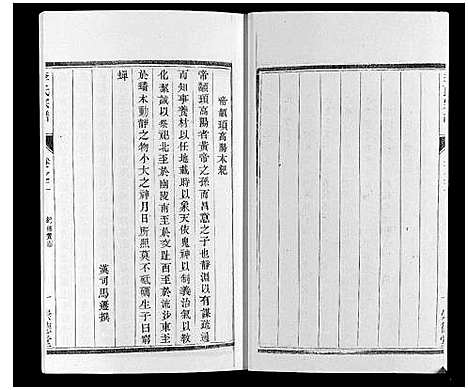 帝顓頊高陽本紀
漢司馬遷撰
帝顓頊高陽者黃帝之孫而昌意之子也靜淵以有謀疏通
而知事養材以任地載時以象天依鬼神以制義治氣以教
化絜誠以祭祀北至於幽陵南至於交趾西至於流沙東至
於蟠木動靜之物小大之神月日所照莫不砥礪生子曰窮
蟬
氏宗譜
卷之
一